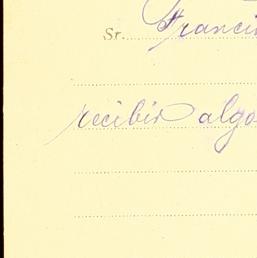 Sr. Franci
recibir algo